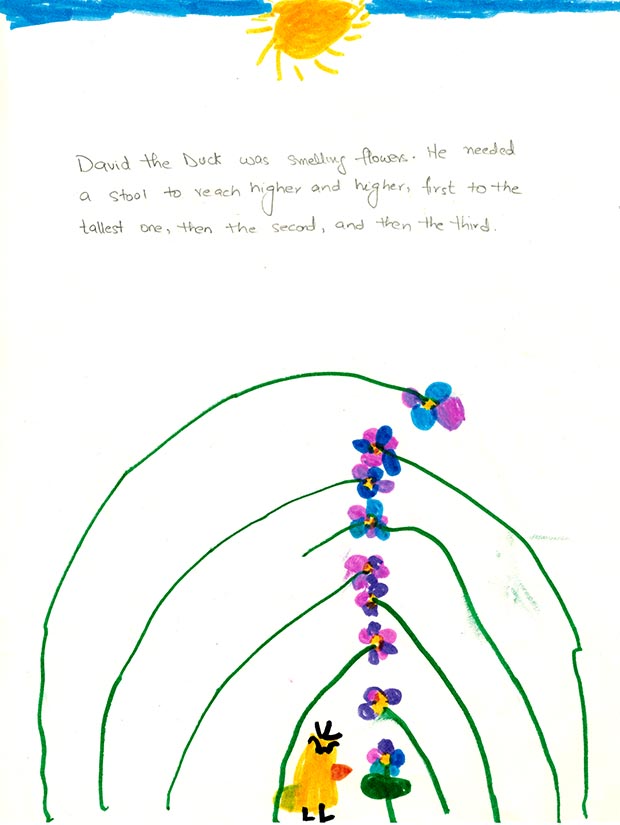 David the Duck was smelling flowers. He needed
a stool to reach higher and higher, first to the
tallest one, then the second, and then the third.